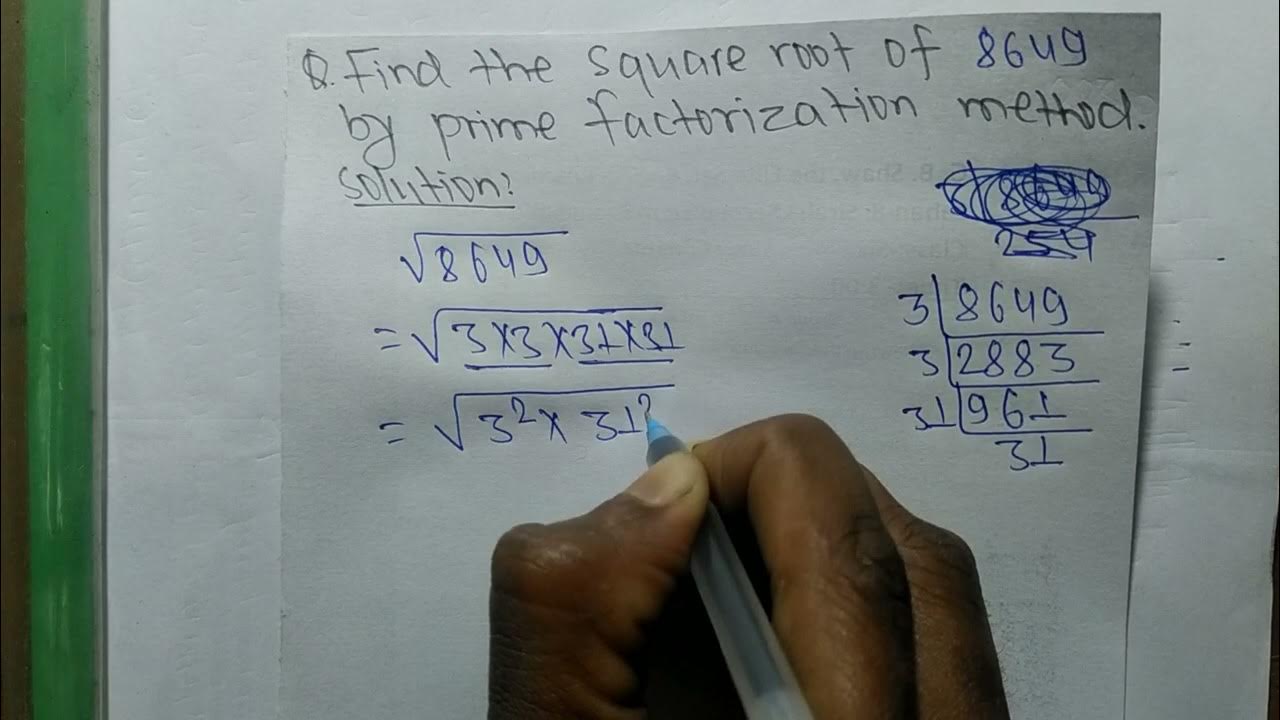 Q. Find the square root of 8649
by prime factorization method.
Solution:
√8649
= √3×3×31×31
= √3²× 31²
254
3 8649
3 2883
31 961
31